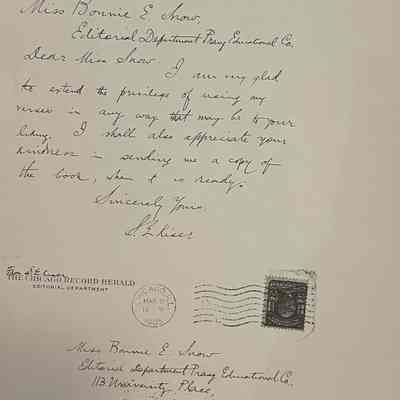 Miss Bonnie E. Snow,
Editorial Department Prang Educational Co.
Dear Miss Snow.
I am very glad
to extend the privilege of using my
verses in any way that may be to your
liking. I shall also appreciate your
kindness in sending me a copy of
the book, when it is ready.
Sincerely Yours,
S. E. Kiser
From S. E. Kiser
THE CHICAGO RECORD HERALD
EDITORIAL DEPARTMENT
CHICAGO, ILL.
MAR
Miss Bonnie E. Snow
Editorial Department Prang Educational Co.
113 University Place,